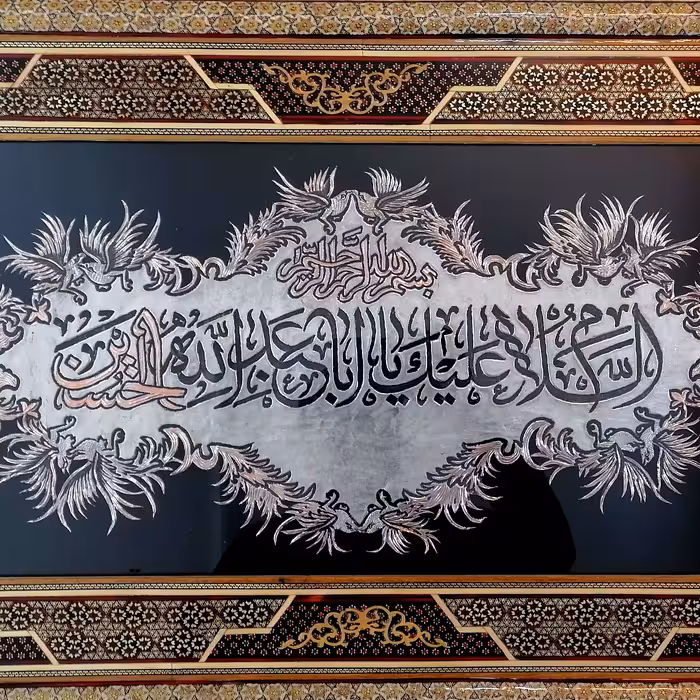 بسم الله الرحمن الرحیم
السلام علیک یا ابا عبدالله الحسین